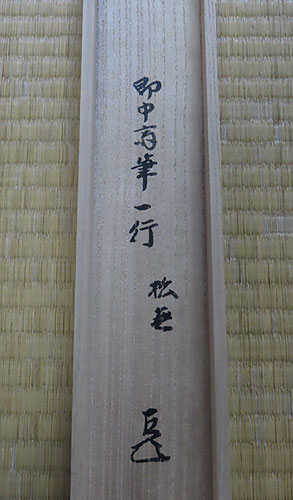 即中斎筆一行
松無